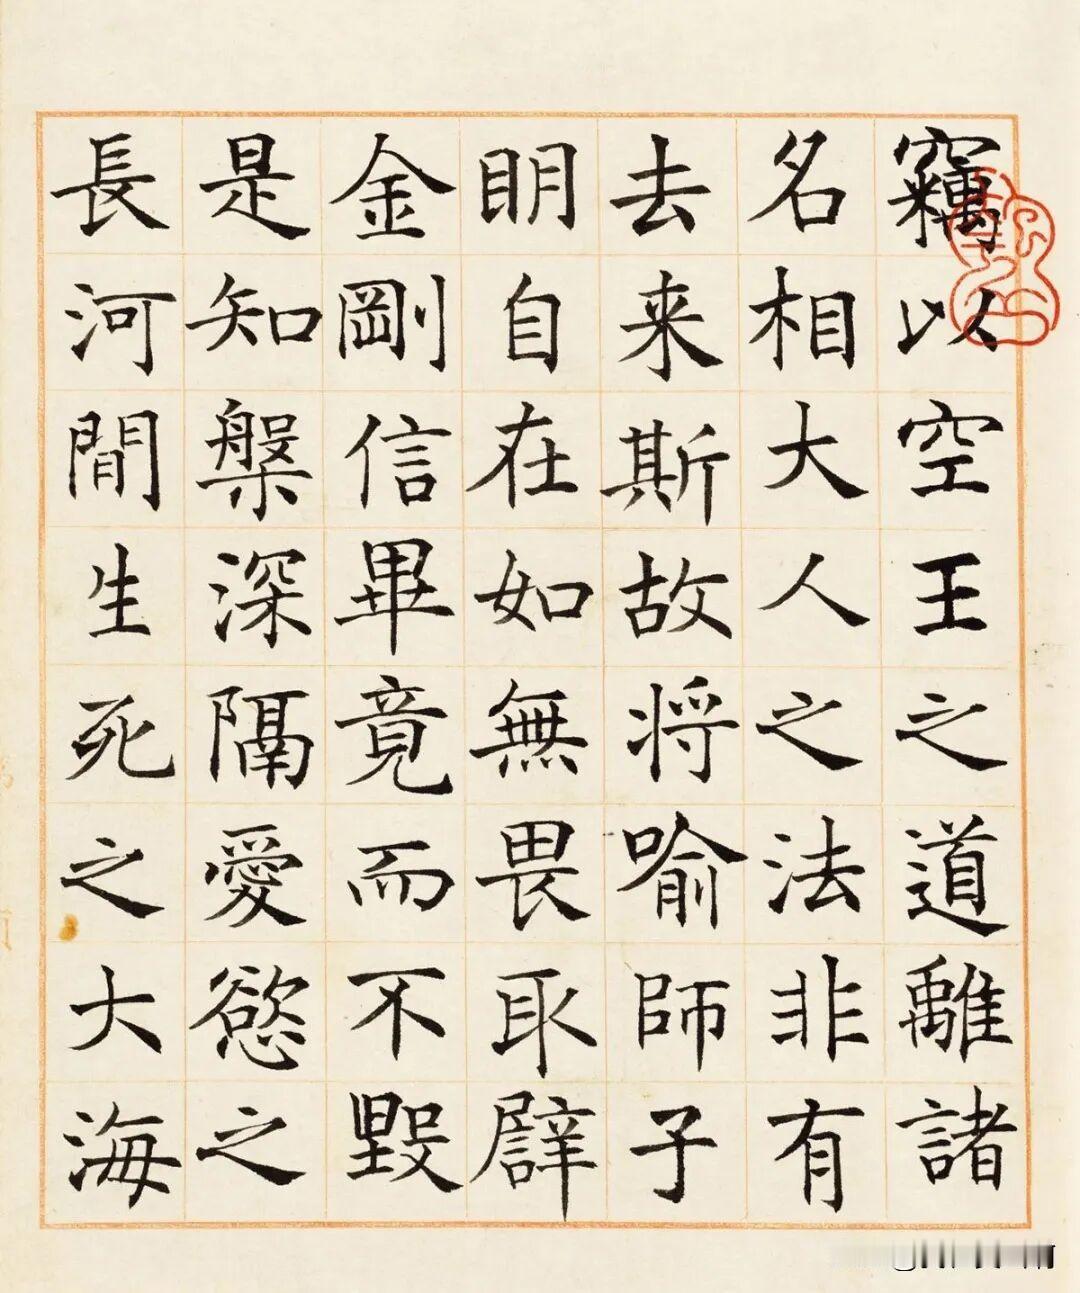 竊以空王之道離諸
名相大人之法非有
去来斯故将喻師子
眀自在如無畏取辟
金剛信畢竟而不毀
是知槃深隔愛慾之
長河間生死之大海